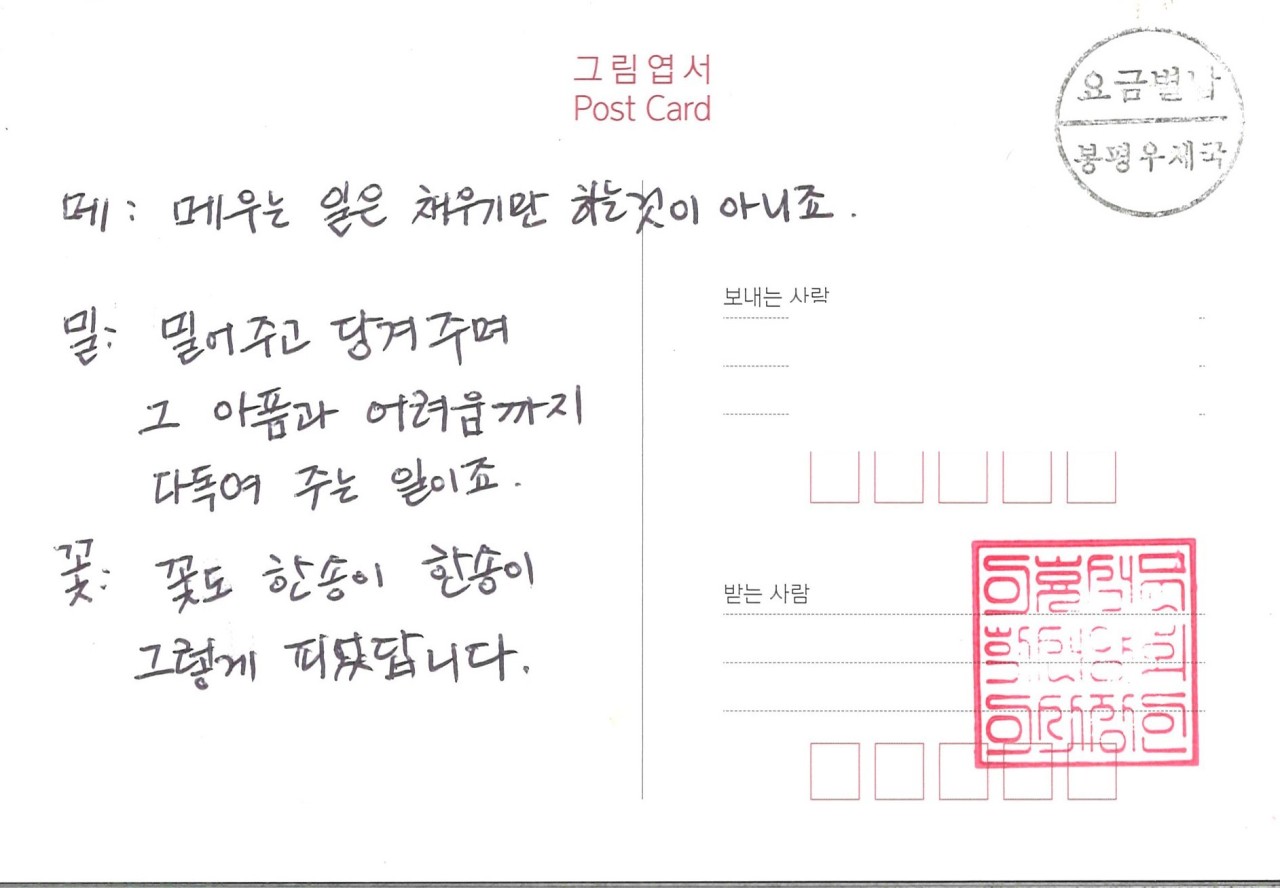 그림엽서
Post Card
요금별납
봉평우체국
메 : 메우는 일은 채우기만 하는것이 아니죠.
밀: 밀어주고 당겨주며
그 아픔과 어려움까지
다독여 주는 일이죠.
꽃: 꽃도 한송이 한송이
그렇게 피었답니다.
보내는 사람
받는 사람